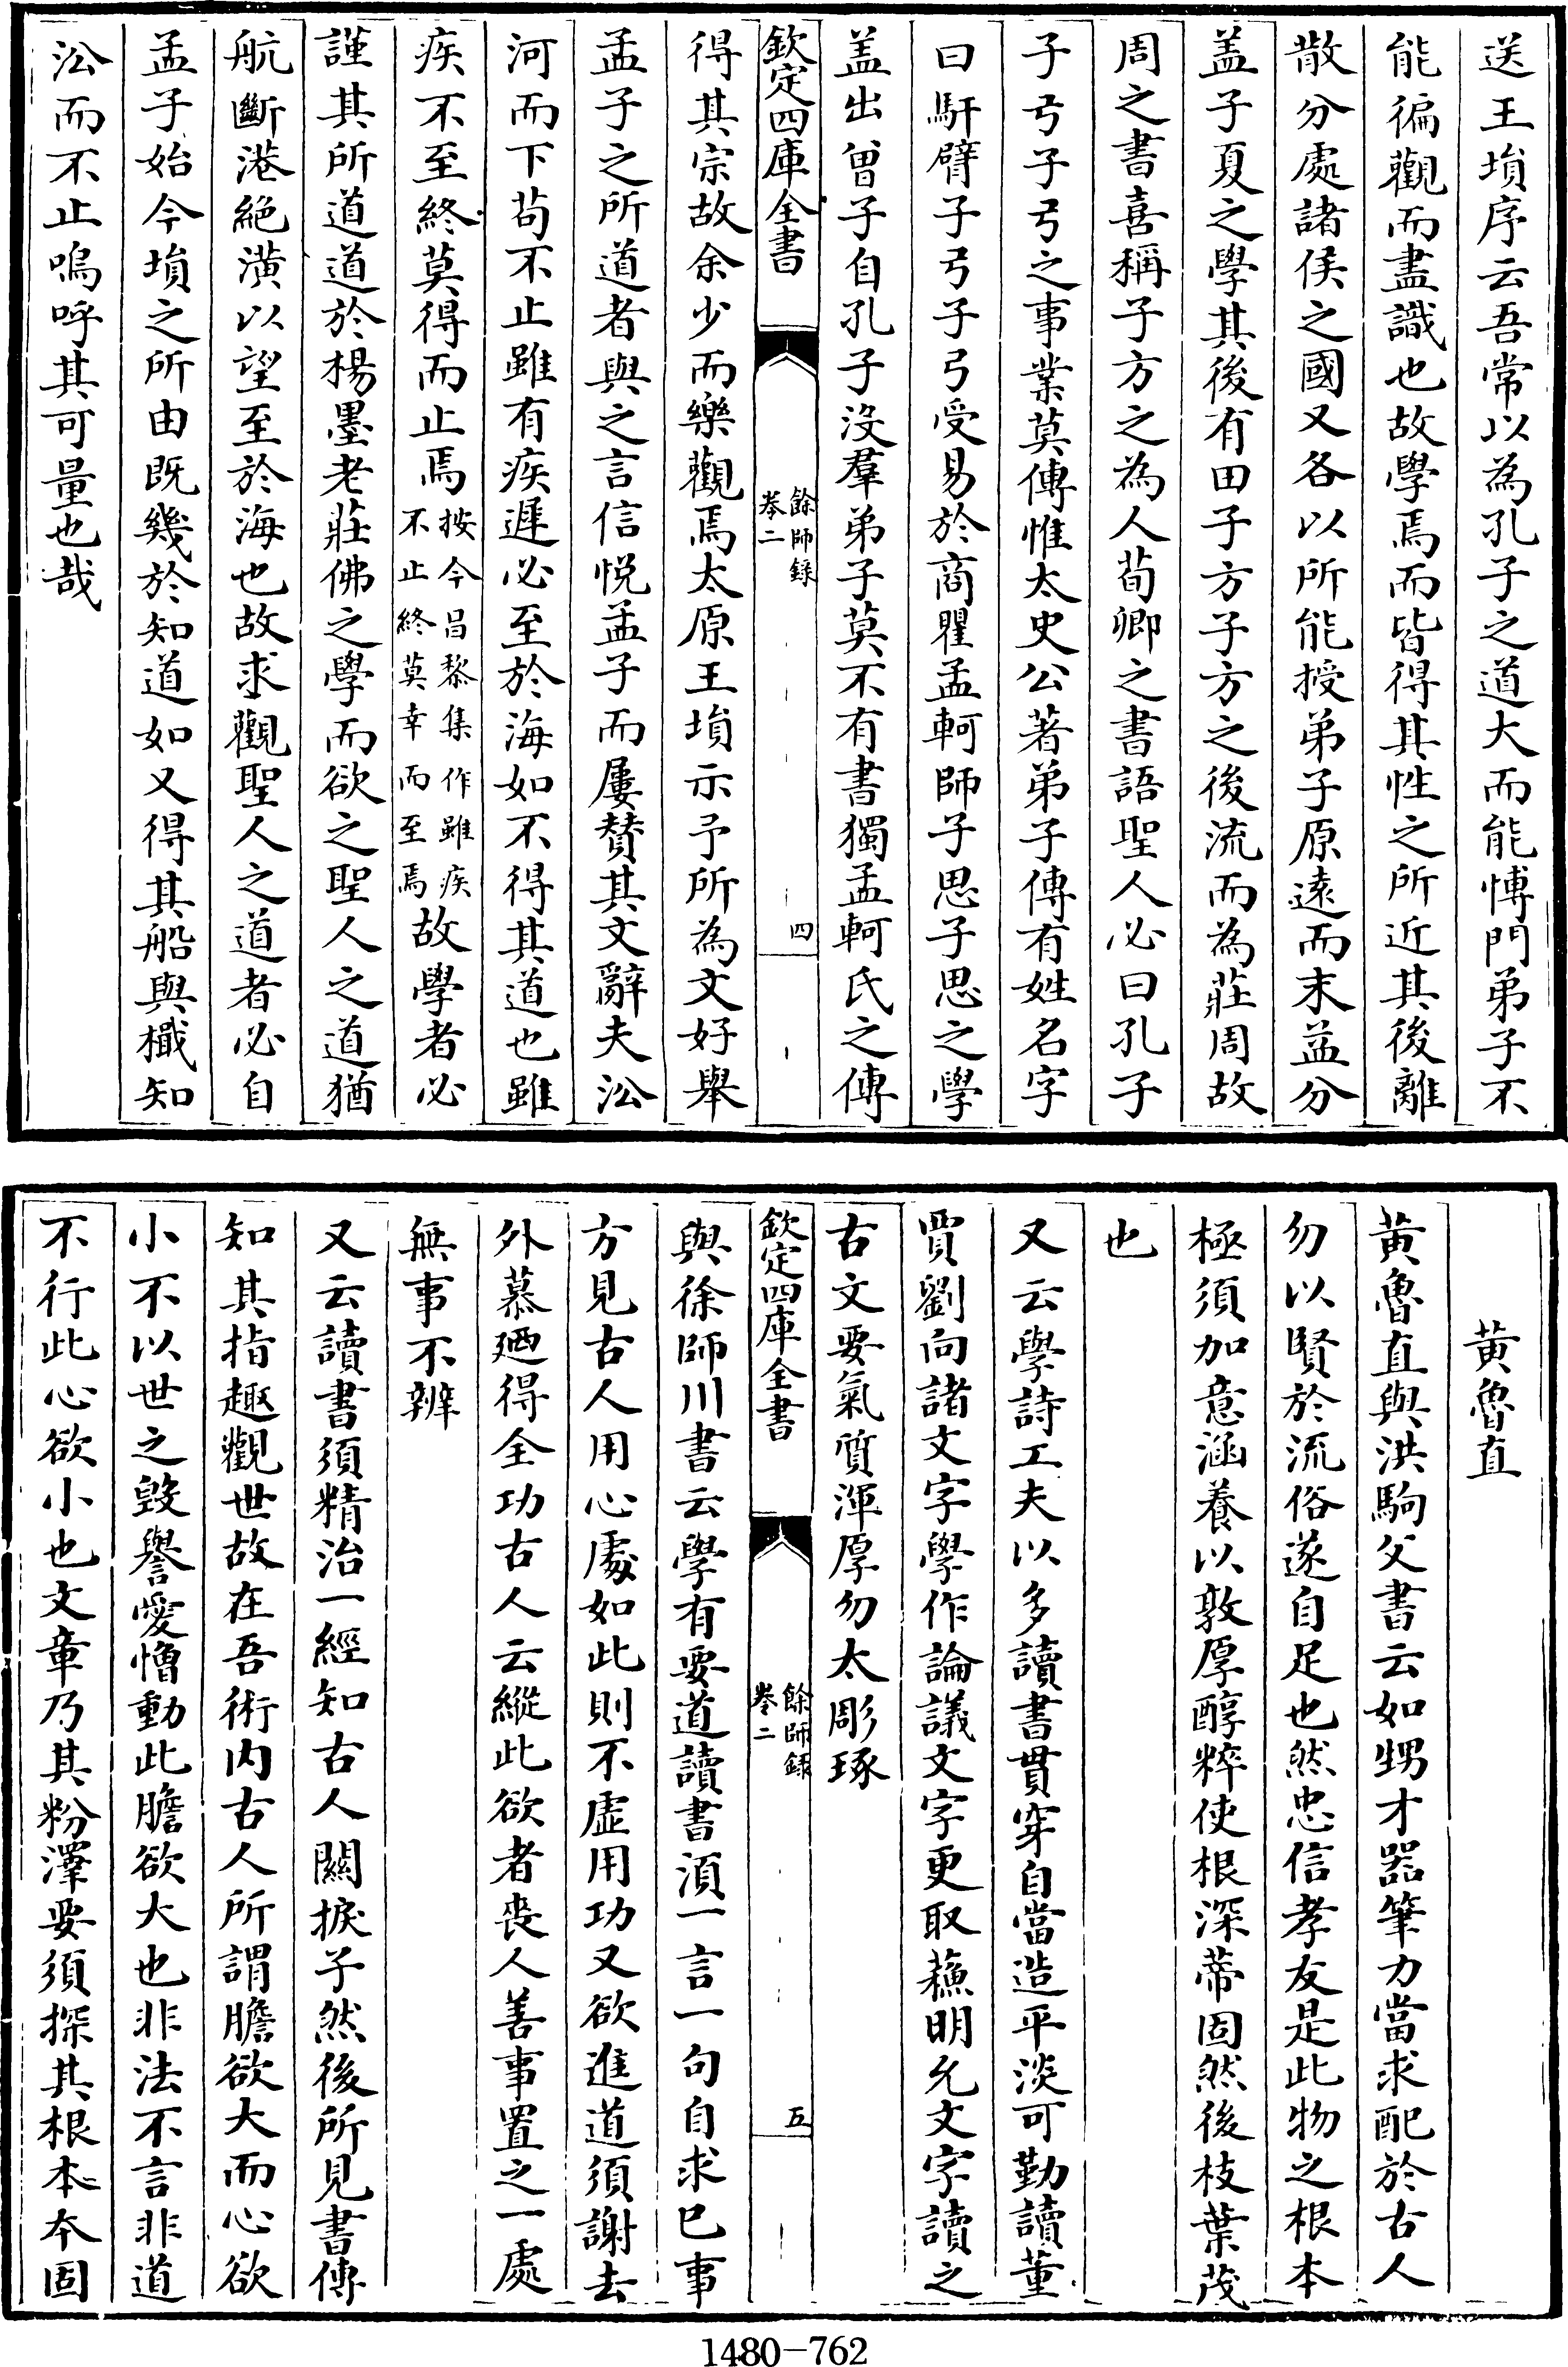 送王塤序云吾常以為孔子之道大而能博門弟子不
能徧觀而盡識也故學焉而皆得其性之所近其後離
散分處諸侯之國又各以所能授弟子原遠而末益分
盖子夏之學其後有田子方子方之後流而為莊周故
周之書喜稱子方之為人荀卿之書語聖人必曰孔子
子弓子弓之事業莫傳惟太史公著弟子傳有姓名字
曰馯臂子弓子弓受易於商瞿孟軻師子思子思之學
盖出曾子自孔子沒羣弟子莫不有書獨孟軻氏之傳
欽定四庫全書
餘師録
卷二
四
得其宗故余少而樂觀焉太原王塤示予所為文好舉
孟子之所道者與之言信悅孟子而屢賛其文辭夫沿
河而下苟不止雖有疾遲必至於海如不得其道也雖
疾不至終莫得而止焉按今昌黎集作雖疾不止終莫幸而至焉故學者必
謹其所道道於楊墨老莊佛之學而欲之聖人之道猶
航斷港絶潢以望至於海也故求觀聖人之道者必自
孟子始今塤之所由既幾於知道如又得其船與檝知
沿而不止嗚呼其可量也哉
黄魯直
黄魯直與洪駒父書云如甥才器筆力當求配於古人
勿以賢於流俗遂自足也然忠信孝友是此物之根本
極須加意涵養以敦厚醇粹使根深蒂固然後枝葉茂
也
又云學詩工夫以多讀書貫穿自當造平淡可勤讀董
賈劉向諸文字學作論議文字更取蘓明允文字讀之
古文要氣質渾厚勿太彫琢
欽定四庫全書
餘師録
卷二
五
與徐師川書云學有要道讀書湏一言一句自求已事
方見古人用心處如此則不虛用功又欲進道須謝去
外慕廼得全功古人云縱此欲者喪人善事置之一處
無事不辨
又云讀書須精治一經知古人關捩子然後所見書傳
知其指趣觀世故在吾術内古人所謂膽欲大而心欲
小不以世之毁譽愛憎動此膽欲大也非法不言非道
不行此心欲小也文章乃其粉澤要須探其根本本固
1480-762